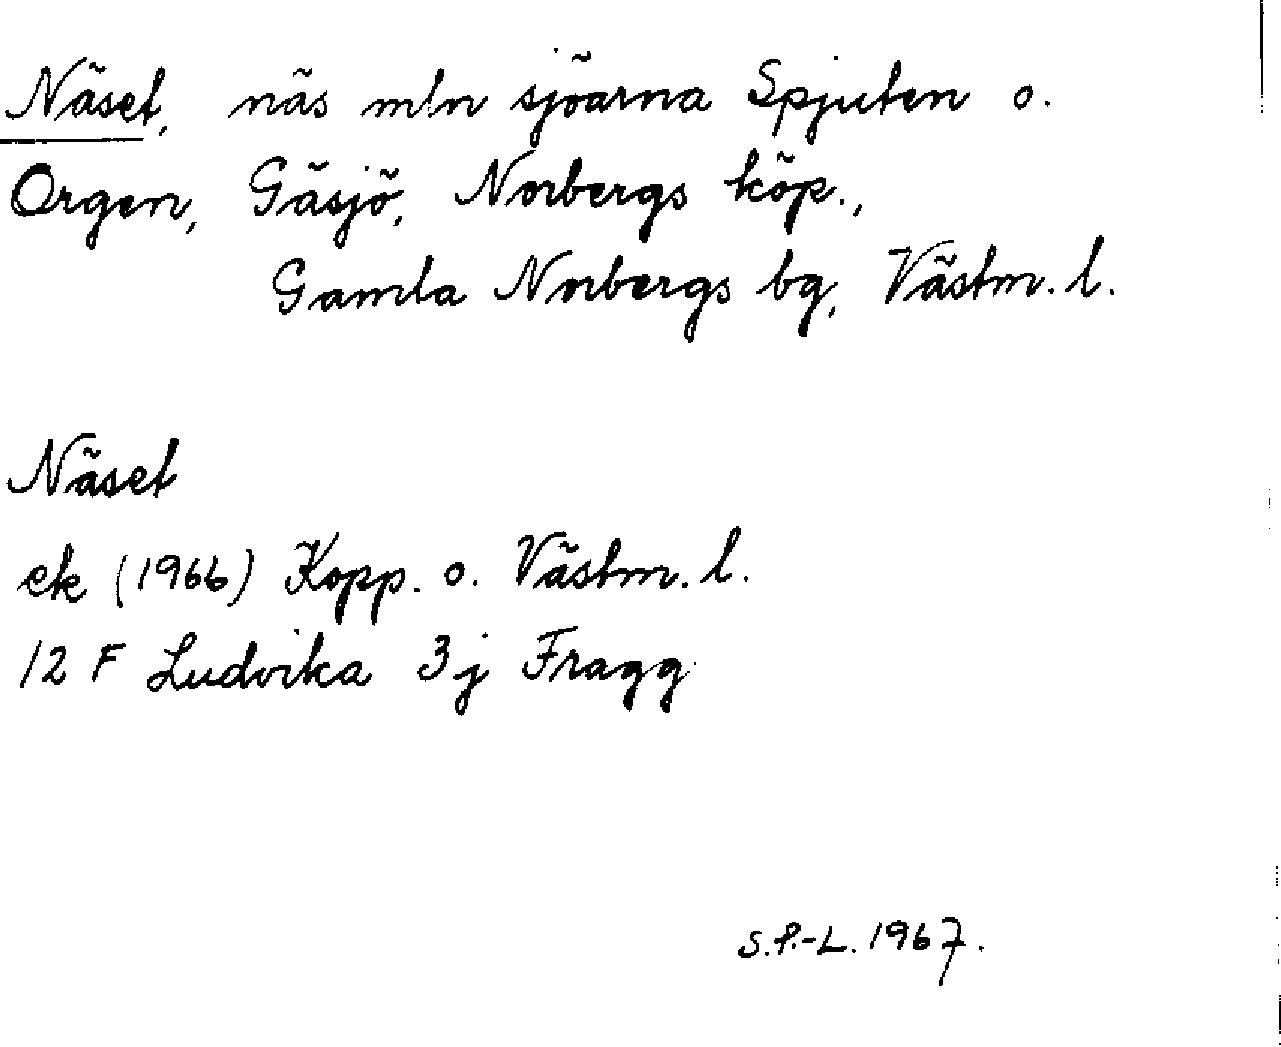 Näset, näs mln sjöarna Spjuten o.
Orgen, Gäsjö, Norbergs köp.,
Gamla Norbergs bg, Västm. l.
Näset
ek (1966) Kopp. o. Västm. l.
12 F Ludvika 3j Fragg
S.P.-L. 1967.